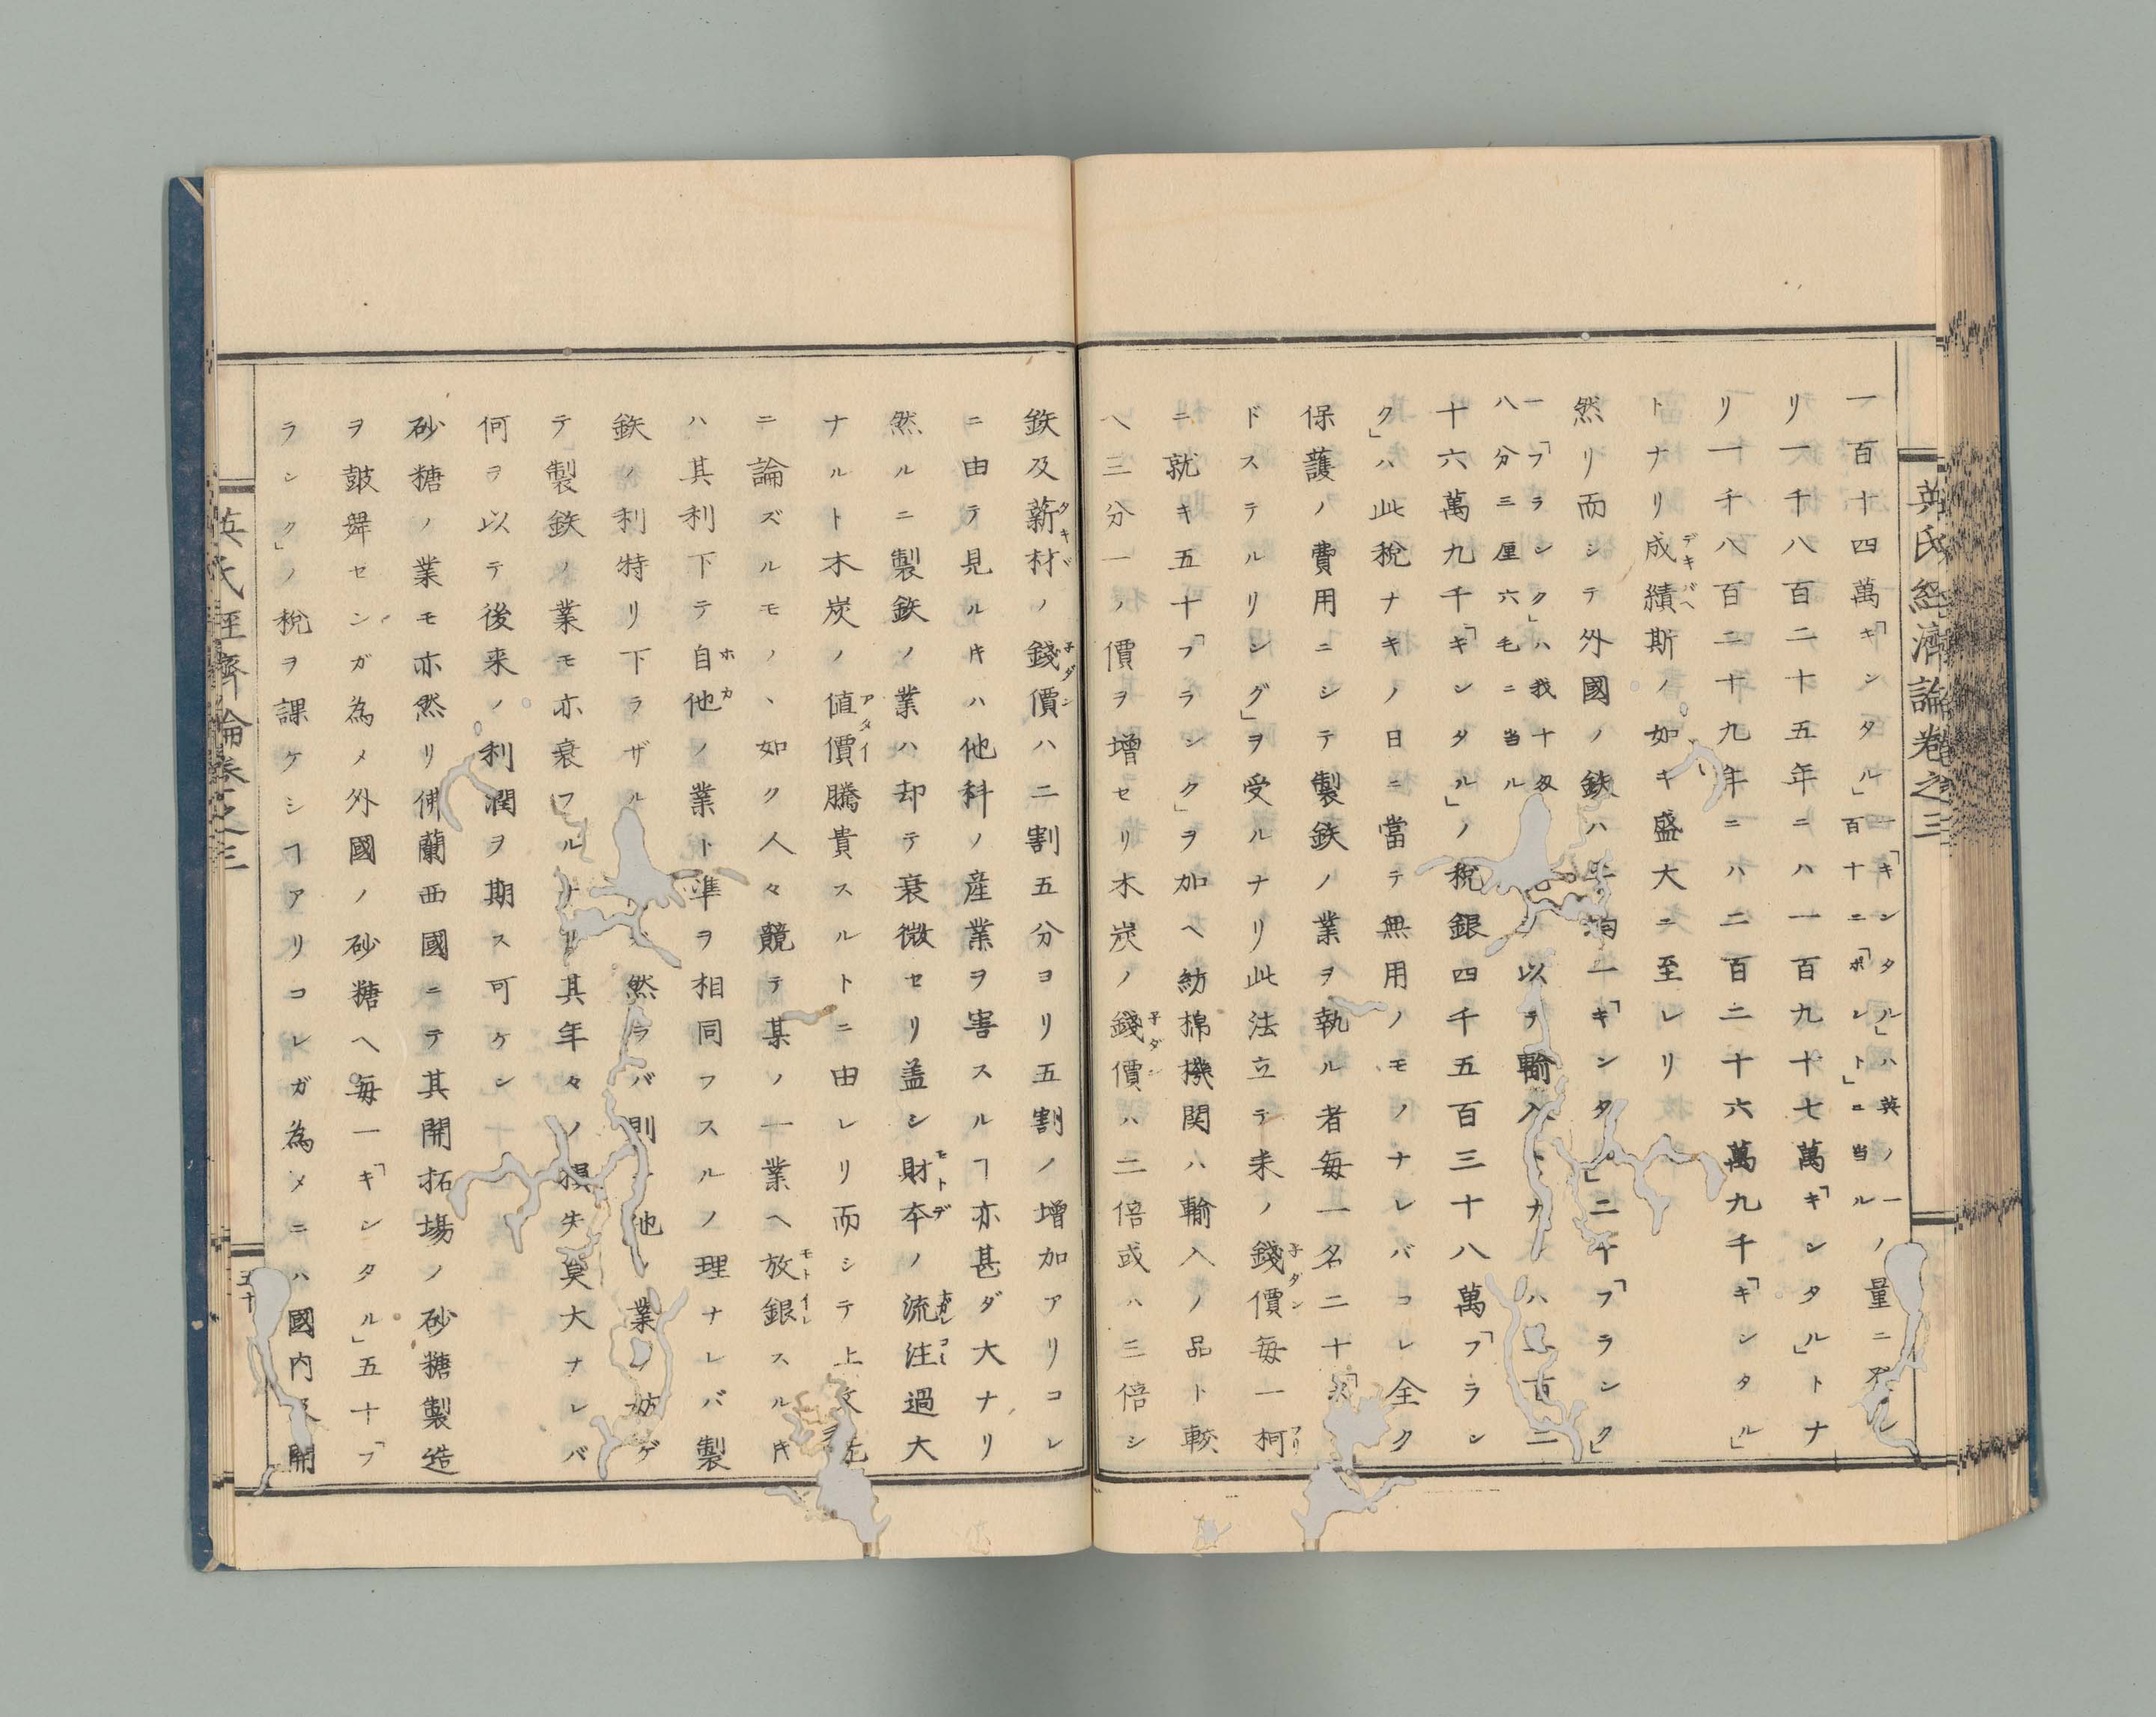 英氏經濟論卷之三
一百十四萬「キンタル」一「キンタル」ハ英ノ一百十二「ポンド」ニ当ルノ量ニ
リ一千八百二十五年ニハ一百九十七萬「キンタル」トナ
リ一千八百二十九年ニハ二百二十六萬九千「キンタル」
トナリ成績斯ノ如キ盛大ニ至レリ
デキバヘ
然リ而シテ外國ノ鉄ハ 一「キンタル」二十「フランク」
一「フランク」ハ我十匁八分三厘六毛ニ当ル 以テ輸入
十六萬九千「キンタル」ノ税銀四千五百三十八萬「フラン
ク」ハ此税ナキノ日ニ當テ無用ノモノナレバコレ全ク
保護ノ費用ニシテ製鉄ノ業ヲ執ル者毎一名二十
ドステルリング」ヲ受ルナリ此法立テ来ノ錢價毎一柯
子ダン フリ
ニ就キ五十「フランク」ヲ加ヘ紡棉機関ハ輸入ノ品ト較
ヘ三分一ノ價ヲ增セリ木炭ノ錢價ハ二倍或ハ三倍シ
子ダン
鉄及薪材ノ錢價ハ二割五分ヨリ五割ノ增加アリコレ
タキギ 子ダン
ニ由テ見ルキハ他科ノ産業ヲ害スルヿ亦甚ダ大ナリ
然ルニ製鉄ノ業ハ却テ衰微セリ盖シ財本ノ流注過大
モトデ
ナルト木炭ノ値價騰貴スルトニ由レリ而シテ上文
アタイ
ニ論ズルモノヽ如ク人々競テ某ノ一業ヘ放銀スルキ
モトイレ
ハ其利下テ自他ノ業ト準ヲ相同フスルノ理ナレバ製
ホカ
鉄ノ利特リ下ラザル 然ラバ則 他ノ業ノ妨ゲ
テ製鉄ノ業モ亦衰フルナリ其年々ノ損失莫大ナレバ
何ヲ以テ後来ノ利潤ヲ期ス可ケン
砂糖ノ業モ亦然リ佛蘭西國ニテ其開拓場ノ砂糖製造
ヲ鼓舞センガ為メ外國ノ砂糖ヘ毎一「キンタル」五十「フ
ランク」ノ税ヲ課ケシヿアリコレガ為メニハ國内及開
英氏經濟論卷之三
五十